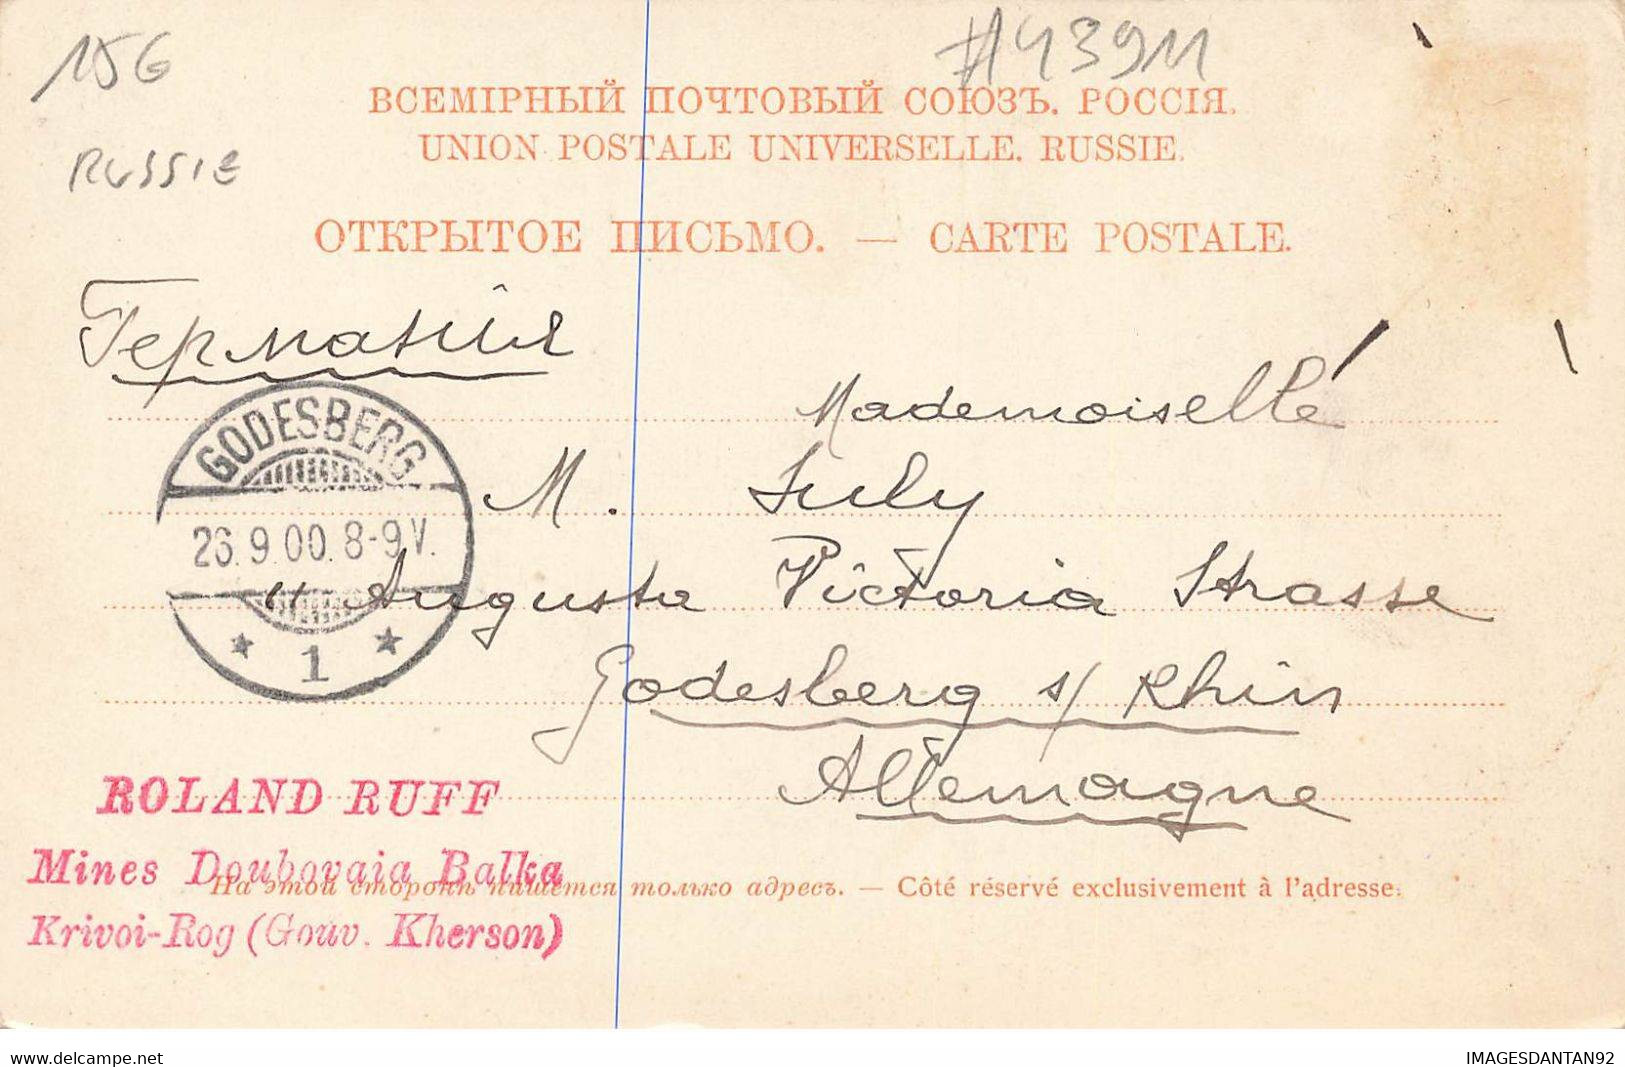 15G
#43911
RUSSIE
ВСЕМІРНЫЙ ПОЧТОВЫЙ СОЮЗЪ. РОССІЯ.
UNION POSTALE UNIVERSELLE. RUSSIE.
ОТКРЫТОЕ ПИСЬМО. — CARTE POSTALE.
Германія
Mademoiselle
M. July
11 Augusta Victoria Strasse
Godesberg s/ Rhin
Allemagne
GODESBERG
26.9.00.8-9V.
* 1 *
ROLAND RUFF
Mines Doubovaia Balka
Krivoi-Rog (Gouv. Kherson)
На этой сторонѣ пишется только адресъ. — Côté réservé exclusivement à l'adresse.
delcampe.net
IMAGESDANTAN92